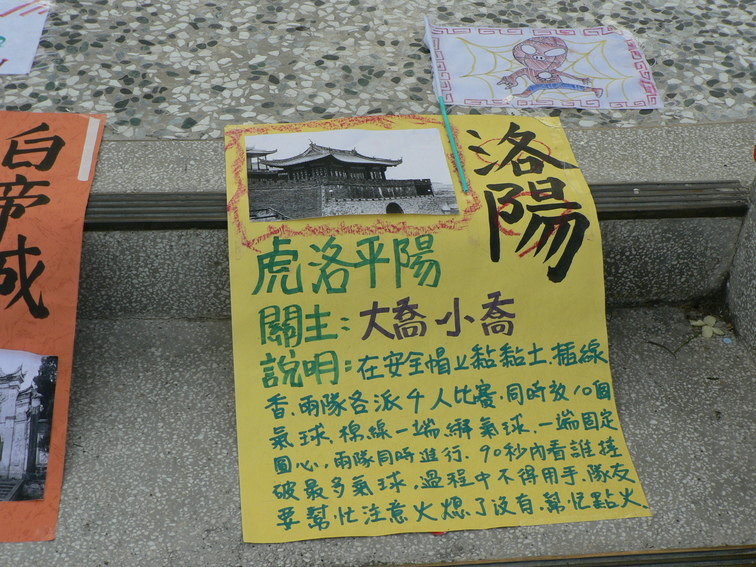 白帝城
洛陽
虎洛平陽
關主:大喬、小喬
說明:在安全帽上黏黏土、插線
香、兩隊各派4人比賽、同時放10個
氣球、棉線一端綁氣球、一端固定
圓心、兩隊同時進行、90秒內看誰撞
破最多氣球、過程中不得用手、隊友
要幫忙注意火熄了沒有、幫忙點火